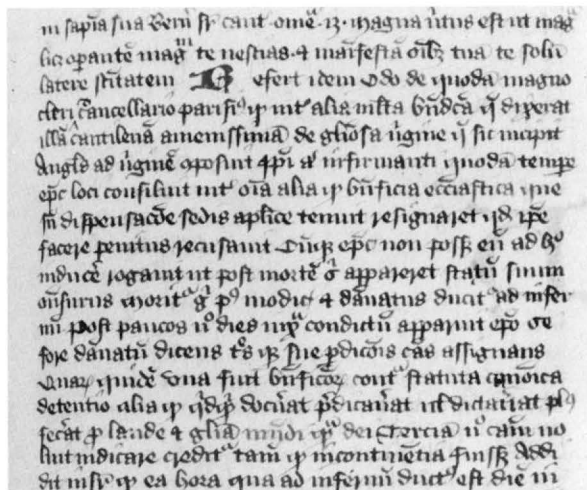 in sapia sua Beni sr cant ome .13. magna utus est ut mag
lic opante mag te nescias. & maifesta oib tua te solu
latere scitatem Refert idem Odo de quoda magno
cltri cancellario parisi qp int alia mlta bndca q dixerat
illa cantilena amenissima de gliosa ugine q sic incipit
Angls ad ugine oposint epi a infirmanti quoda tempe
epc loci consiluit int oia alia qp bnficia ecciastica que
sn dispensacoe sedis aplice tenuit resignaret qd ipe
facere penitus recusauit Cuiq epc non posset eu ad hoc
inducere rogauit ut post morte ei appareret statu suum
onsurus Morit g p modic & danatus ducit ad infer
nu Post paucos u dies iuxa condictu apparuit epo se
fore danatu dicens tres sue pdicois cas assignans
Quar quide una fuit bnficor cont statuta canoica
detentio alia qp qdqp docuat pdicauat ul dictauat pl
fecat p laude & glia mudi qa dei Tercia u cam no
luit indicare credit tam qp incontinetia fuisse Addi
dit insr qp ea hora qua ad infernu duct est die in